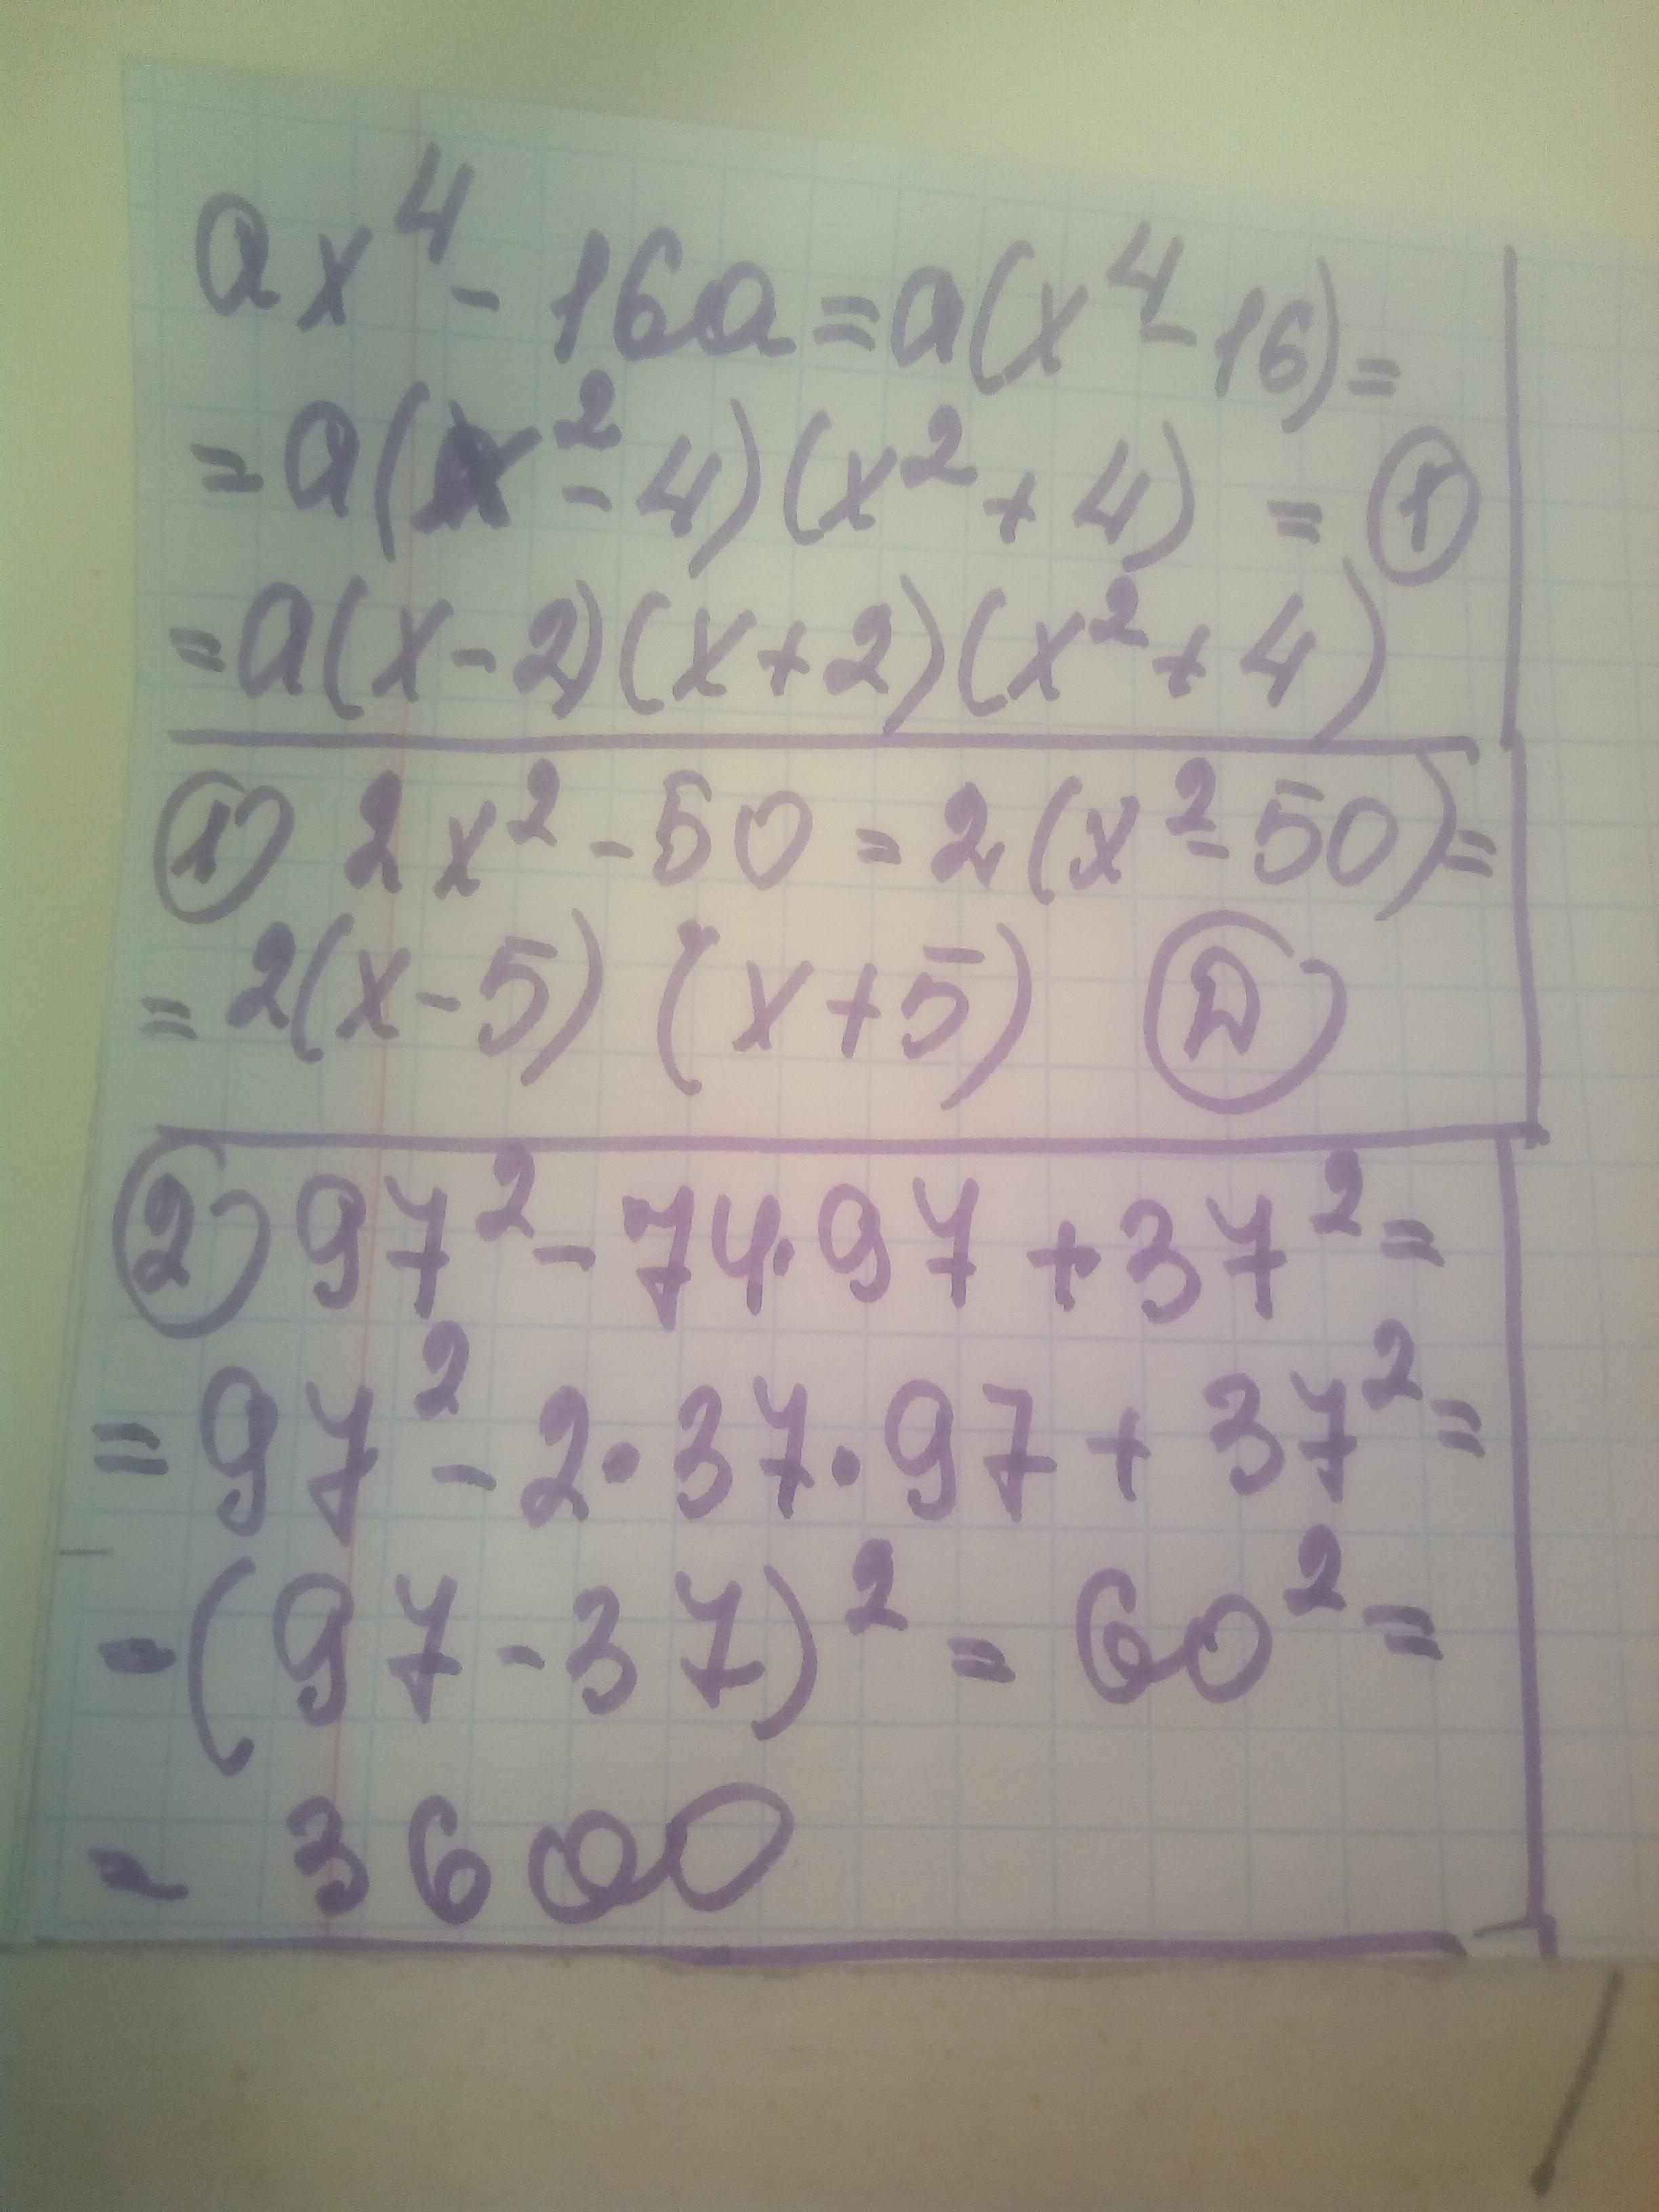 ax⁴ - 16a = a(x⁴ - 16) =
= a(x² - 4)(x² + 4) = ①
= a(x - 2)(x + 2)(x² + 4)
① 2x² - 50 = 2(x² - 50) =
= 2(x - 5) (x + 5) Ⓓ
② 97² - 74·97 + 37² =
= 97² - 2·37·97 + 37² =
- (97 - 37)² = 60² =
= 3600